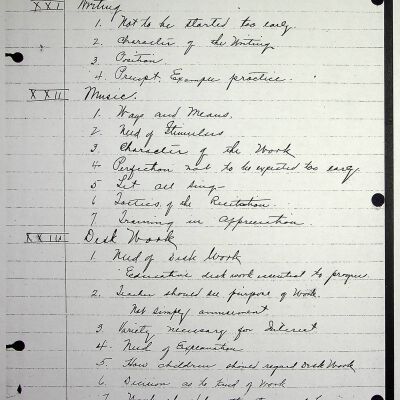 XXI Writing
1. Not to be started too early.
2. Character of the Writing.
3. Position
4. Precept, Example, practice.
XXII Music.
1. Ways and Means.
2. Need of Stimulus
3. Character of the Work
4. Perfection not to be expected too early.
5 Let all sing
6 Tactics of the Recitation.
7 Training in Appreciation
XXIII Desk Work
1. Need of Desk Work
Educative desk work essential to progress.
2. Teacher should see purpose of Work.
Not simply amusement
3. Variety necessary for Interest
4. Need of Explanation
5. How children should regard Desk Work
6. Decision as to kind of Work
7